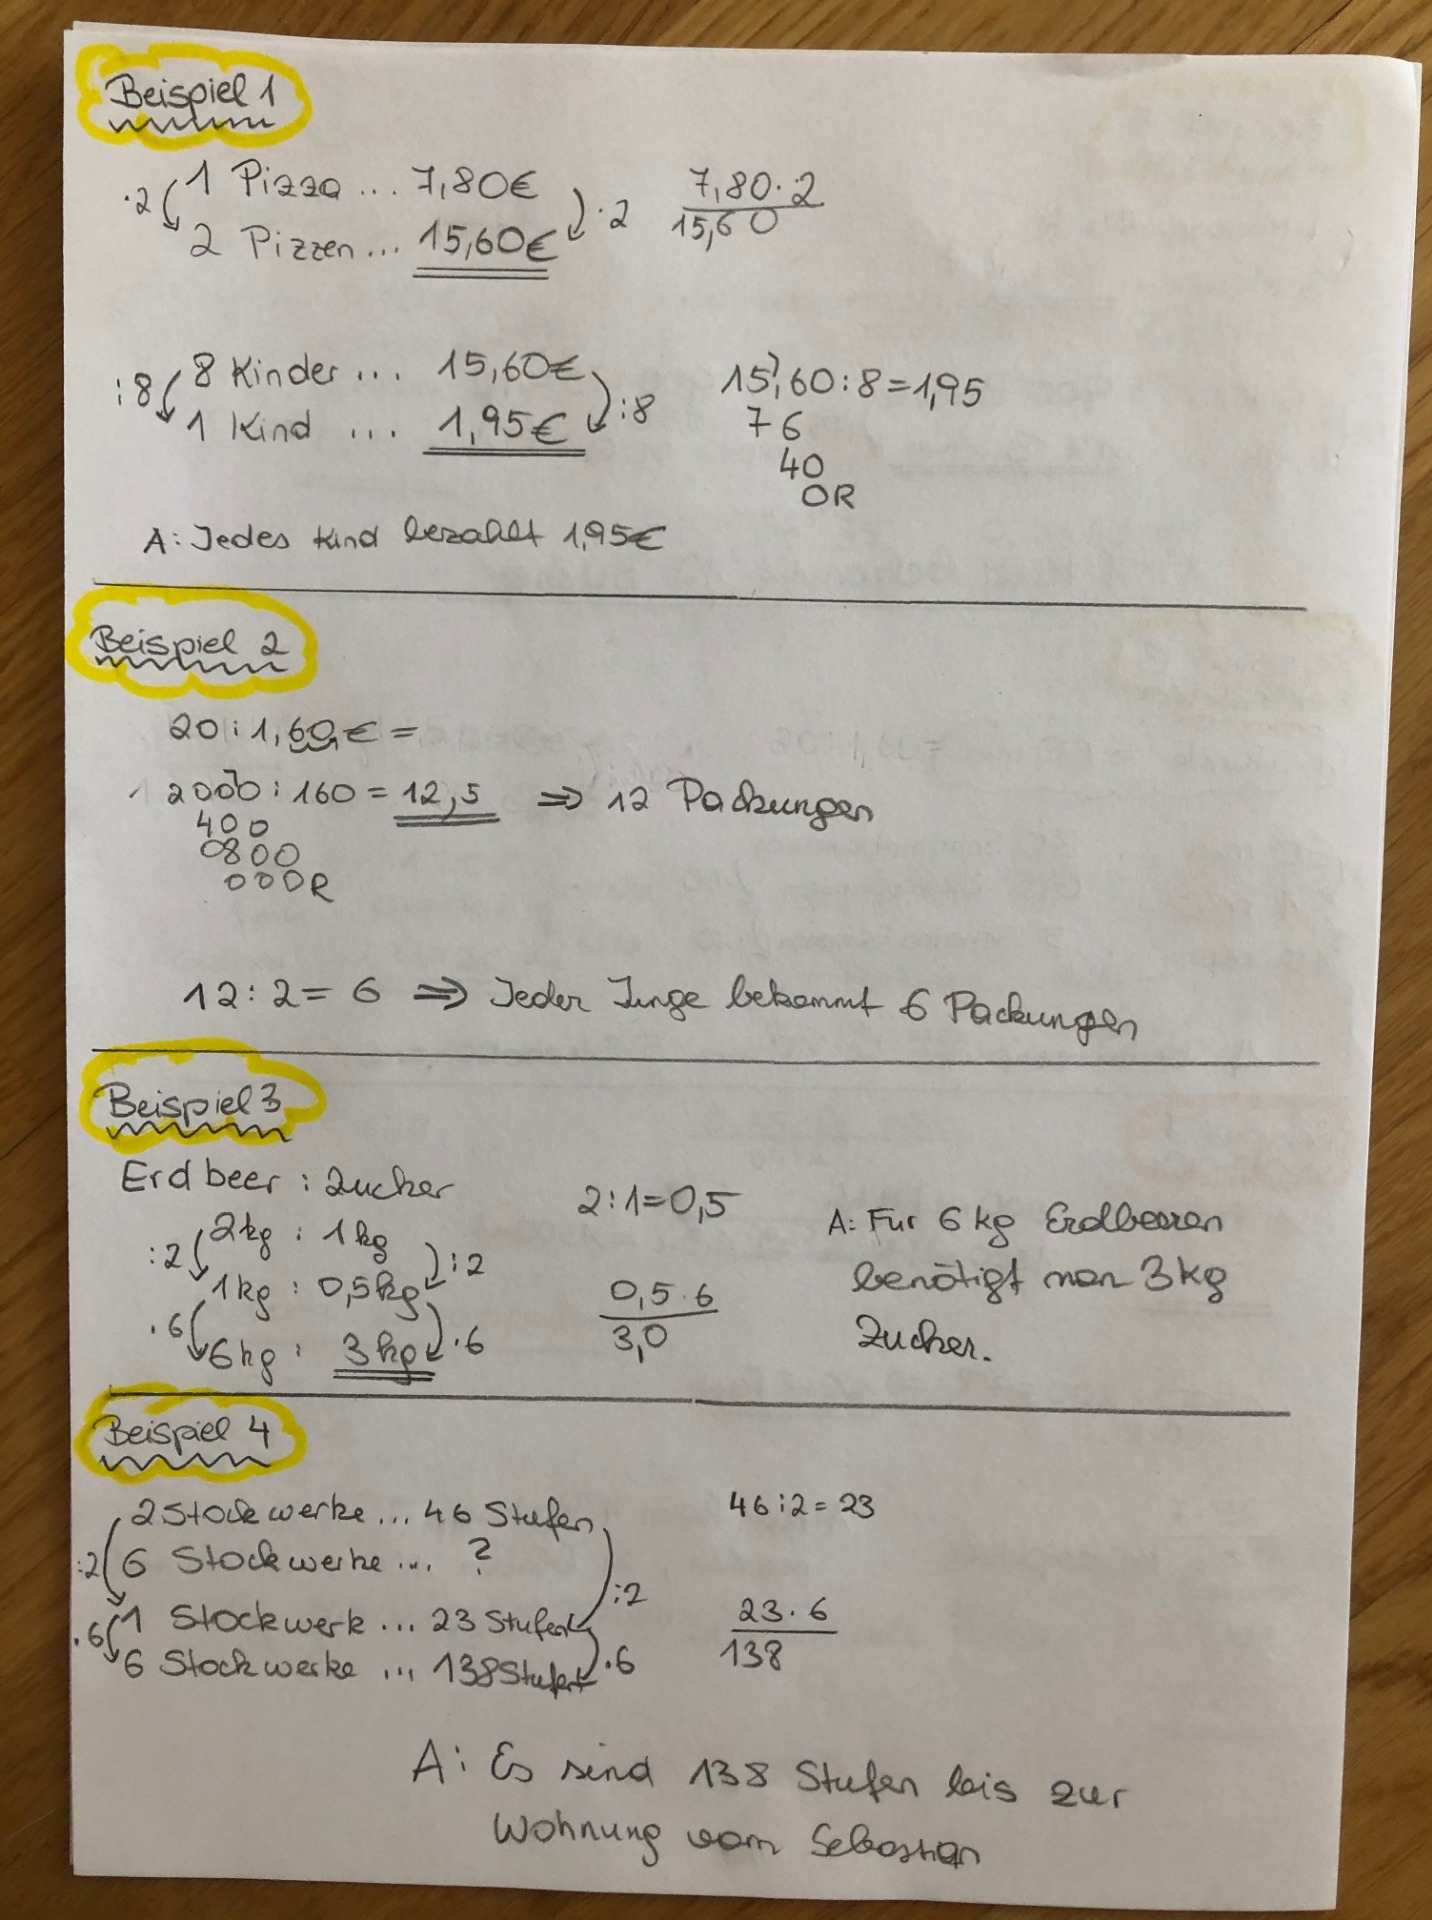 Beispiel 1
·2 1 Pizza ... 7,80€ ·2 7,80·2
2 Pizzen ... 15,60€ 15,60
:8 8 Kinder ... 15,60€ :8 15,60:8=1,95
1 Kind ... 1,95€ 76
40
0R
A: Jedes Kind bezahlt 1,95€
Beispiel 2
20:1,60€=
2000:160=12,5 ⇒ 12 Packungen
400
0800
000R
12:2=6 ⇒ Jeder Junge bekommt 6 Packungen
Beispiel 3
Erdbeer : Zucker 2:1=0,5
:2 2kg : 1kg :2
1kg : 0,5kg 0,5·6
·6 6kg : 3kg ·6 3,0
A: Für 6kg Erdbeeren
benötigt man 3kg
Zucker.
Beispiel 4
2 Stockwerke ... 46 Stufen 46:2=23
:2 6 Stockwerke ... ? :2
1 Stockwerk ... 23 Stufen 23·6
·6 6 Stockwerke ... 138 Stufen ·6 138
A: Es sind 138 Stufen bis zur
Wohnung vom Sebastian